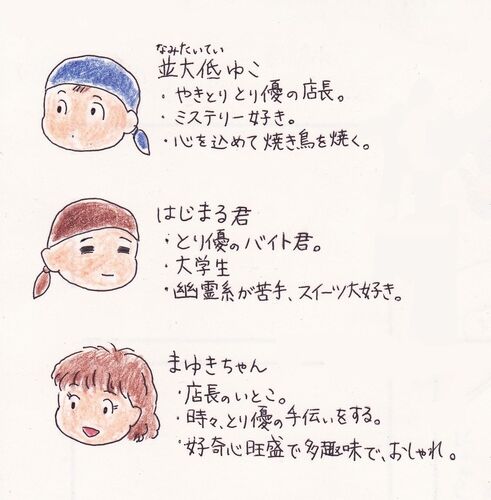 なみたいてい
並大低ゆこ
・やきとり とり優の店長。
・ミステリー好き。
・心を込めて焼き鳥を焼く。
はじまる君
・とり優のバイト君。
・大学生
・幽霊系が苦手、スイーツ大好き。
まゆきちゃん
・店長のいとこ。
・時々、とり優の手伝いをする。
・好奇心旺盛で多趣味で、おしゃれ。